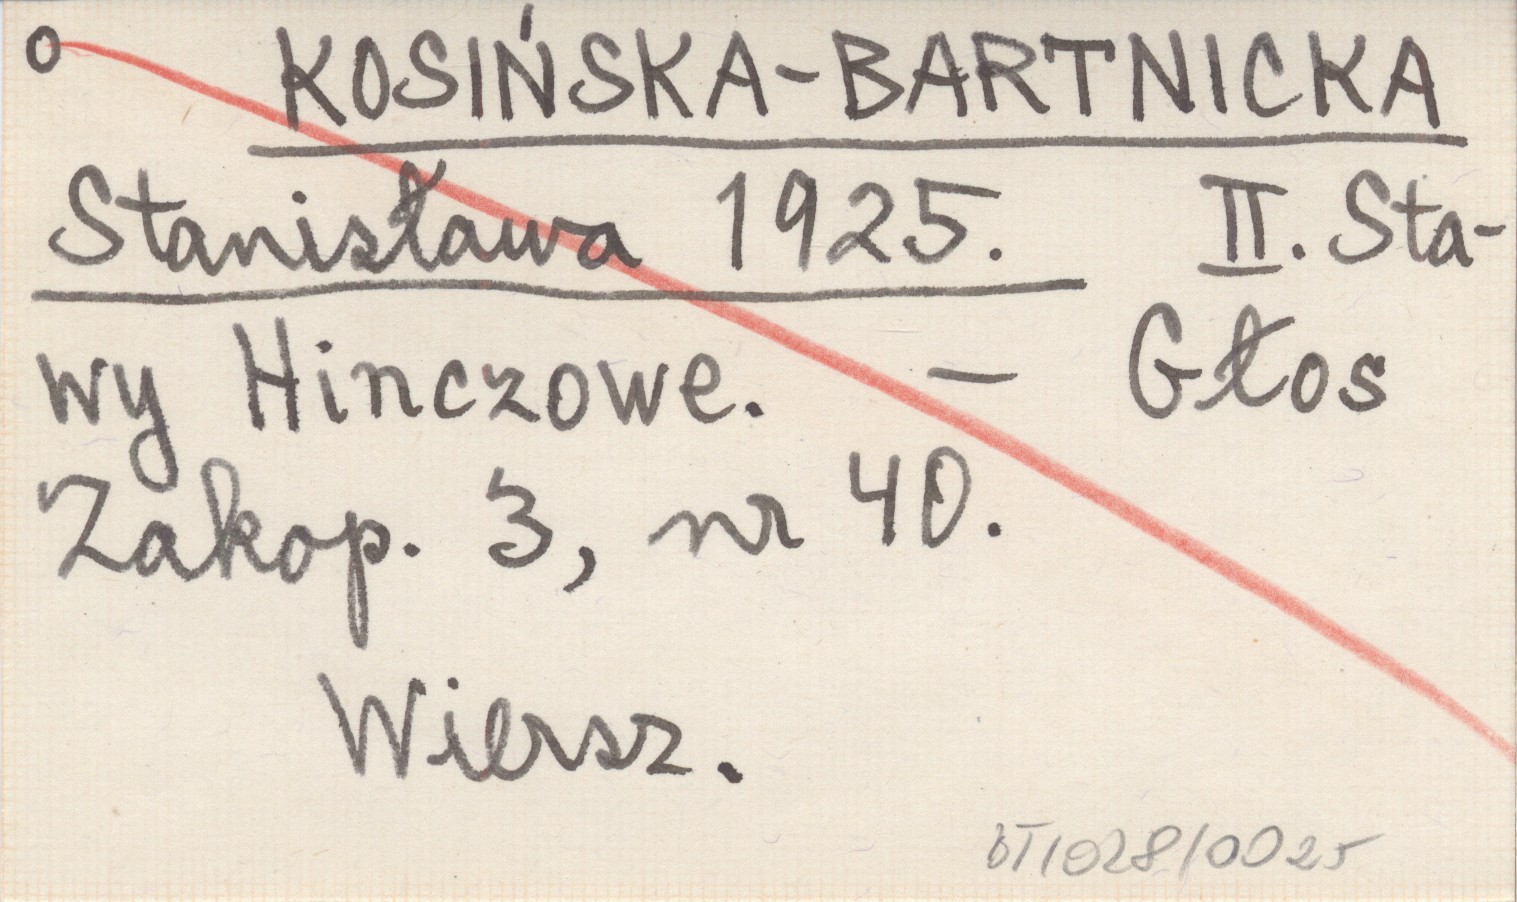 o KOSIŃSKA-BARTNICKA
Stanisława 1925. II. Sta-
wy Hinczowe. — Głos
Zakop. 3, nr 40.
Wiersz.
BT1028/0025